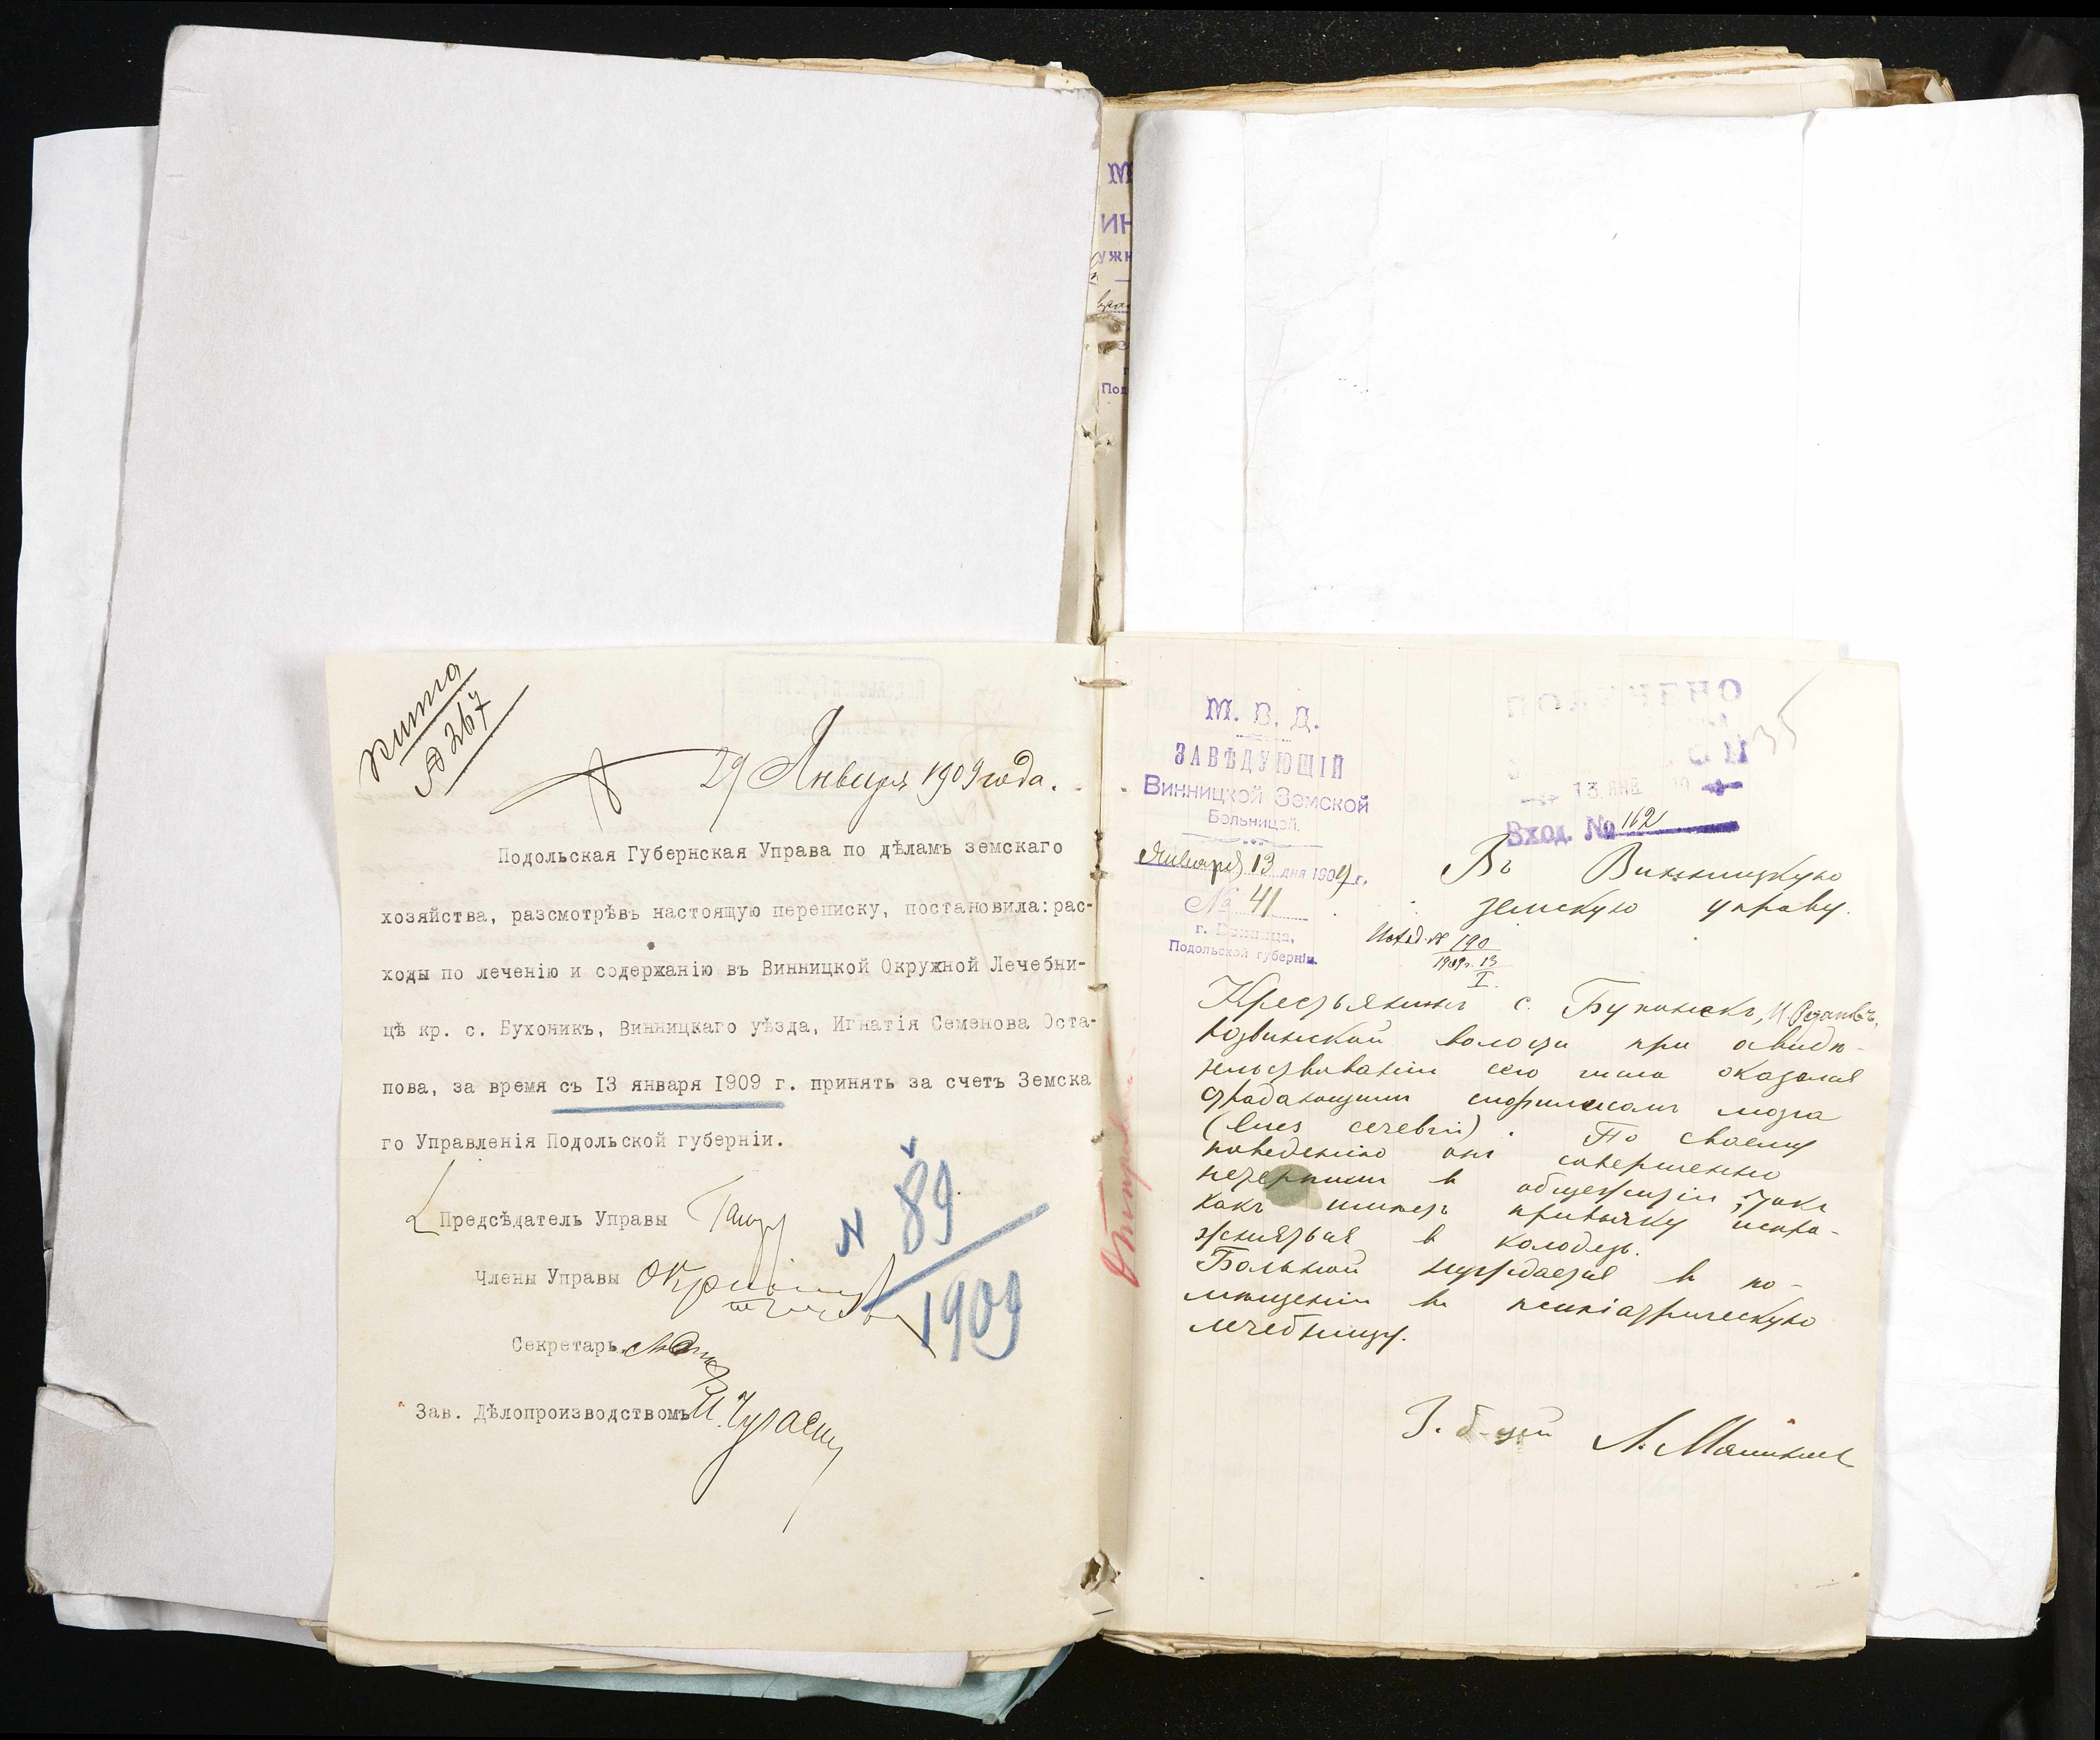 книга
№ 267
29 Января 1909 года.
Подольская Губернская Управа по дѣламъ земскаго
хозяйства, разсмотрѣвъ настоящую переписку, постановила: рас-
ходы по леченію и содержанію въ Винницкой Окружной Лечебни-
цѣ кр. с. Бухоникъ, Винницкаго уѣзда, Игнатія Семенова Оста-
пова, за время съ 13 января 1909 г. принять за счетъ Земска
го Управленія Подольской губерніи.
Предсѣдатель Управы
Члены Управы
Секретарь
Зав. Дѣлопроизводствомъ
N 89
1909
М. В. Д.
ЗАВѢДУЮЩІЙ
Винницкой Земской
Больницей.
Января 13 дня 1909 г.
№ 41
г. Винница,
Подольской губерніи.
ПОЛУЧЕНО
13 ЯНВ
Вход. № 162
35
Въ Винницкую
земскую управу.
190
1909 г. 13
I.
Крестьянинъ с. Бухоникъ,
волости при освидѣ-
тельствованіи сего числа оказался
страдающимъ сифилисомъ мозга
(lues cerebri). По своему
поведенію онъ совершенно
нетерпимъ въ общежитіи, такъ
какъ имѣетъ привычку испра-
жняться въ колодезь.
Больной нуждается въ по-
мѣщеніи въ психіатрическую
лечебницу.
Отправ